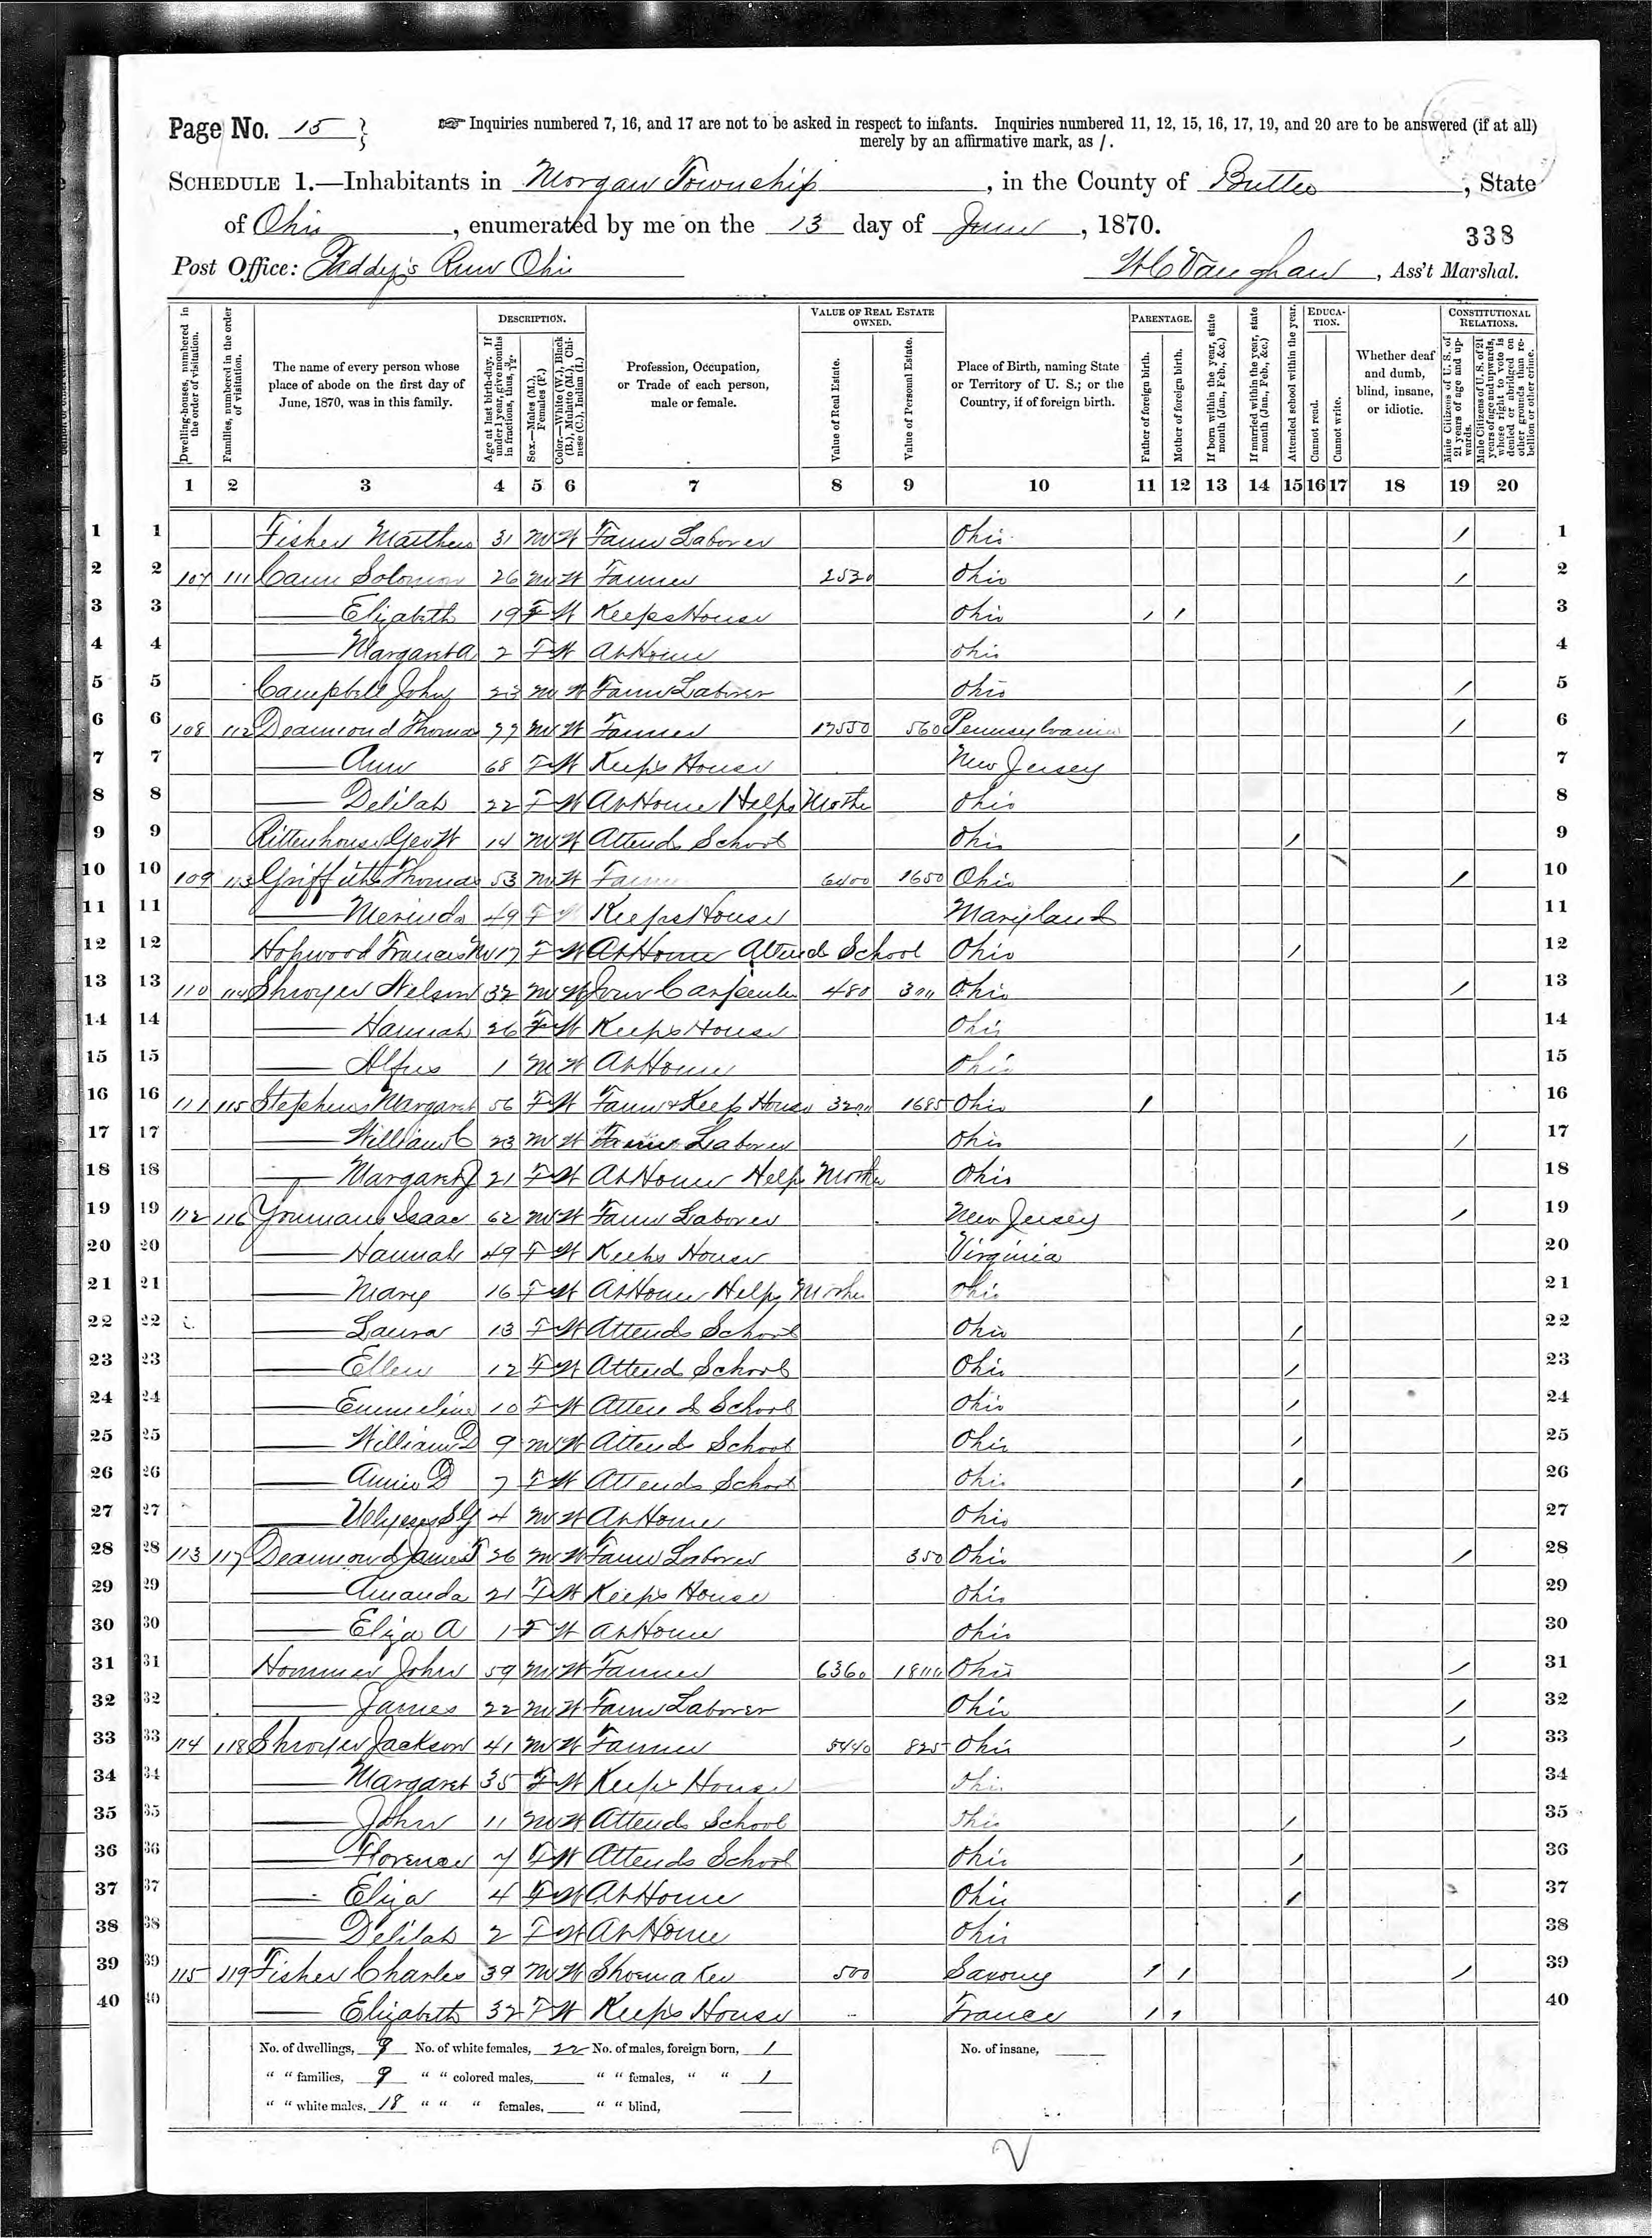 Page No. 15
Inquiries numbered 7, 16, and 17 are not to be asked in respect to infants. Inquiries numbered 11, 12, 15, 16, 17, 19, and 20 are to be answered (if at all)
merely by an affirmative mark, as /.
SCHEDULE 1.—Inhabitants in Morgan Township, in the County of Butler, State
of Ohio, enumerated by me on the 13 day of June, 1870.
338
Post Office: Paddy's Run Ohio W C Vaughan, Ass't Marshal.
Dwelling-houses, numbered in the order of visitation.
Families, numbered in the order of visitation.
The name of every person whose place of abode on the first day of June, 1870, was in this family.
DESCRIPTION.
Age at last birth-day. If under 1 year, give months in fractions, thus, 3/12.
Sex.—Males (M.), Females (F.)
Color.—White (W.), Black (B.), Mulatto (M.), Chinese (C.), Indian (I.)
Profession, Occupation, or Trade of each person, male or female.
VALUE OF REAL ESTATE OWNED.
Value of Real Estate.
Value of Personal Estate.
Place of Birth, naming State or Territory of U. S.; or the Country, if of foreign birth.
PARENTAGE.
Father of foreign birth.
Mother of foreign birth.
If born within the year, state month (Jan., Feb., &c.)
If married within the year, state month (Jan., Feb., &c.)
Attended school within the year.
EDUCATION.
Cannot read.
Cannot write.
Whether deaf and dumb, blind, insane, or idiotic.
CONSTITUTIONAL RELATIONS.
Male Citizens of U. S. of 21 years of age and upwards.
Male Citizens of U. S. of 21 years of age and upwards, whose right to vote is denied or abridged on other grounds than rebellion or other crime.
1 2 3 4 5 6 7 8 9 10 11 12 13 14 15 16 17 18 19 20
1 1 Fisher Matthew 31 M W Farm Laborer Ohio / 1
2 2 107 111 Cann Solomon 26 M W Farmer 2520 Ohio / 2
3 3 — Elizabeth 19 F W Keeps House Ohio / / 3
4 4 — Margaret A 2 F W At Home Ohio 4
5 5 Campbell John 23 M W Farm Laborer Ohio / 5
6 6 108 112 Dearmond Thomas 77 M W Farmer 17550 560 Pennsylvania / 6
7 7 — Ann 68 F W Keeps House New Jersey 7
8 8 — Delilah 22 F W At Home Helps Mother Ohio 8
9 9 Rittenhouse Geo W 14 M W Attends School Ohio / 9
10 10 109 113 Griffith Thomas 53 M W Farmer 6400 1650 Ohio / 10
11 11 — Merinda 49 F W Keeps House Maryland 11
12 12 Hopwood Francis M 17 F W At Home Attends School Ohio / 12
13 13 110 114 Shroyer Nelson 32 M W Jour Carpenter 480 300 Ohio / 13
14 14 — Hannah 26 F W Keeps House Ohio 14
15 15 — Alfus 1 M W At Home Ohio 15
16 16 111 115 Stephens Margaret 56 F W Farm & Keep House 3200 1685 Ohio / 16
17 17 — William C 23 M W Farm Laborer Ohio / 17
18 18 — Margaret J 21 F W At Home Helps Mother Ohio 18
19 19 112 116 Youmans Isaac 62 M W Farm Laborer New Jersey / 19
20 20 — Hannah 49 F W Keeps House Virginia 20
21 21 — Mary 16 F W At Home Helps Mother Ohio 21
22 22 — Laura 13 F W Attends School Ohio / 22
23 23 — Ellen 12 F W Attends School Ohio / 23
24 24 — Emmeline 10 F W Attends School Ohio / 24
25 25 — William D 9 M W Attends School Ohio / 25
26 26 — Annie D 7 F W Attends School Ohio / 26
27 27 — Ulysses S G 4 M W At Home Ohio 27
28 28 113 117 Dearmond James T 26 M W Farm Laborer 350 Ohio / 28
29 29 — Amanda 21 F W Keeps House Ohio 29
30 30 — Eliza A 1 F W At Home Ohio 30
31 31 Hommer John 59 M W Farmer 6360 1800 Ohio / 31
32 32 — James 22 M W Farm Laborer Ohio / 32
33 33 114 118 Shroyer Jackson 41 M W Farmer 5440 825 Ohio / 33
34 34 — Margaret 35 F W Keeps House Ohio 34
35 35 — John 11 M W Attends School Ohio / 35
36 36 — Florence 7 F W Attends School Ohio / 36
37 37 — Eliza 4 F W At Home Ohio / 37
38 38 — Delilah 2 F W At Home Ohio 38
39 39 115 119 Fisher Charles 39 M W Shoemaker 500 Saxony / / / 39
40 40 — Elizabeth 32 F W Keeps House France / / 40
No. of dwellings, 9 No. of white females, 22 No. of males, foreign born, 1 No. of insane,
" " families, 9 " " colored males, " " females, " " 1
" " white males, 18 " " " females, " " blind,